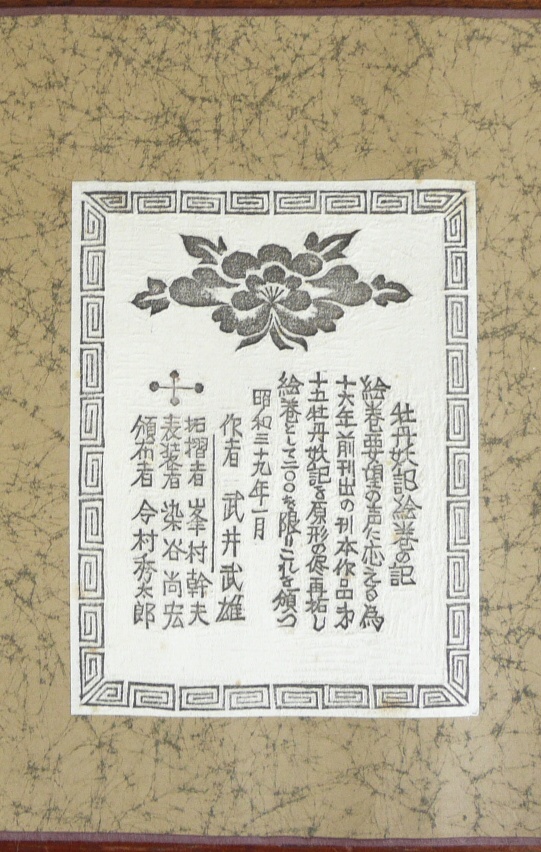 牡丹妖記絵巻の記
絵巻要望の声に応える為
十六年前刊出の刊本作品才
十五牡丹妖記を原形の侭再拓し
絵巻として二〇〇を限りこれを頒つ
昭和三十九年一月
作者 武井武雄
拓摺者 峯村幹夫
表装者 染谷尚宏
頒布者 今村秀太郎